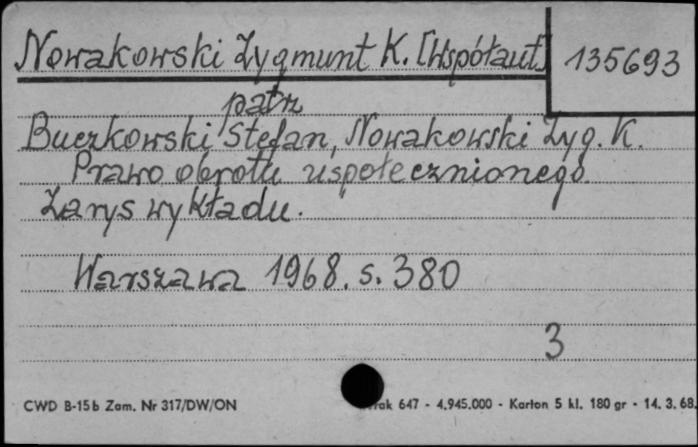 Nowakowski Zygmunt K. [Współaut.] 135693
patrz
Buczkowski Stefan, Nowakowski Zyg. K.
Prawo obrotu uspołecznionego.
Zarys wykładu.
Warszawa 1968. s. 380
3
CWD B-15b Zam. Nr 317/DW/ON rak 647 - 4.945.000 - Karton 5 kl. 180 gr - 14. 3. 68.